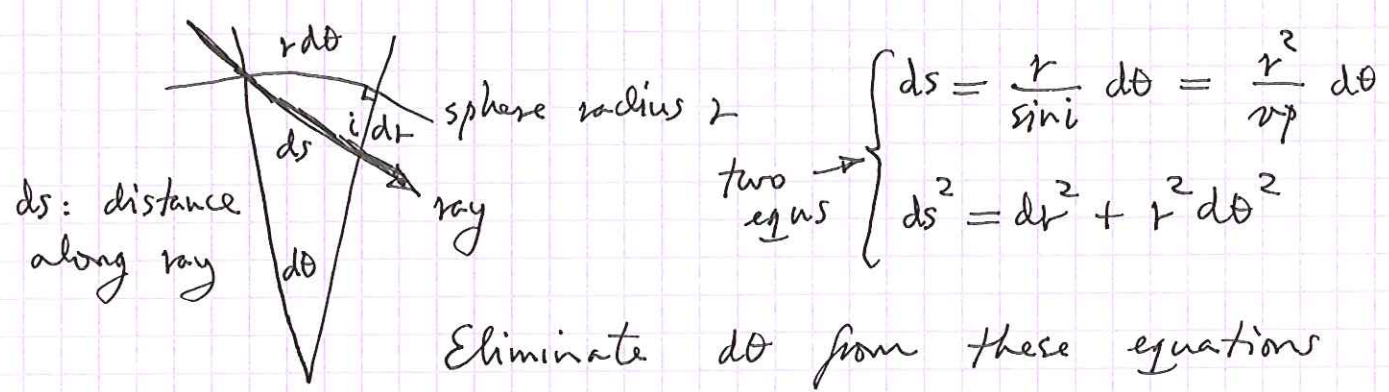 r dθ
sphere radius r
i
dr
ds
ray
ds: distance
along ray
dθ
two equns →
ds = r / sin i dθ = r² / vp dθ
ds² = dr² + r² dθ²
Eliminate dθ from these equations